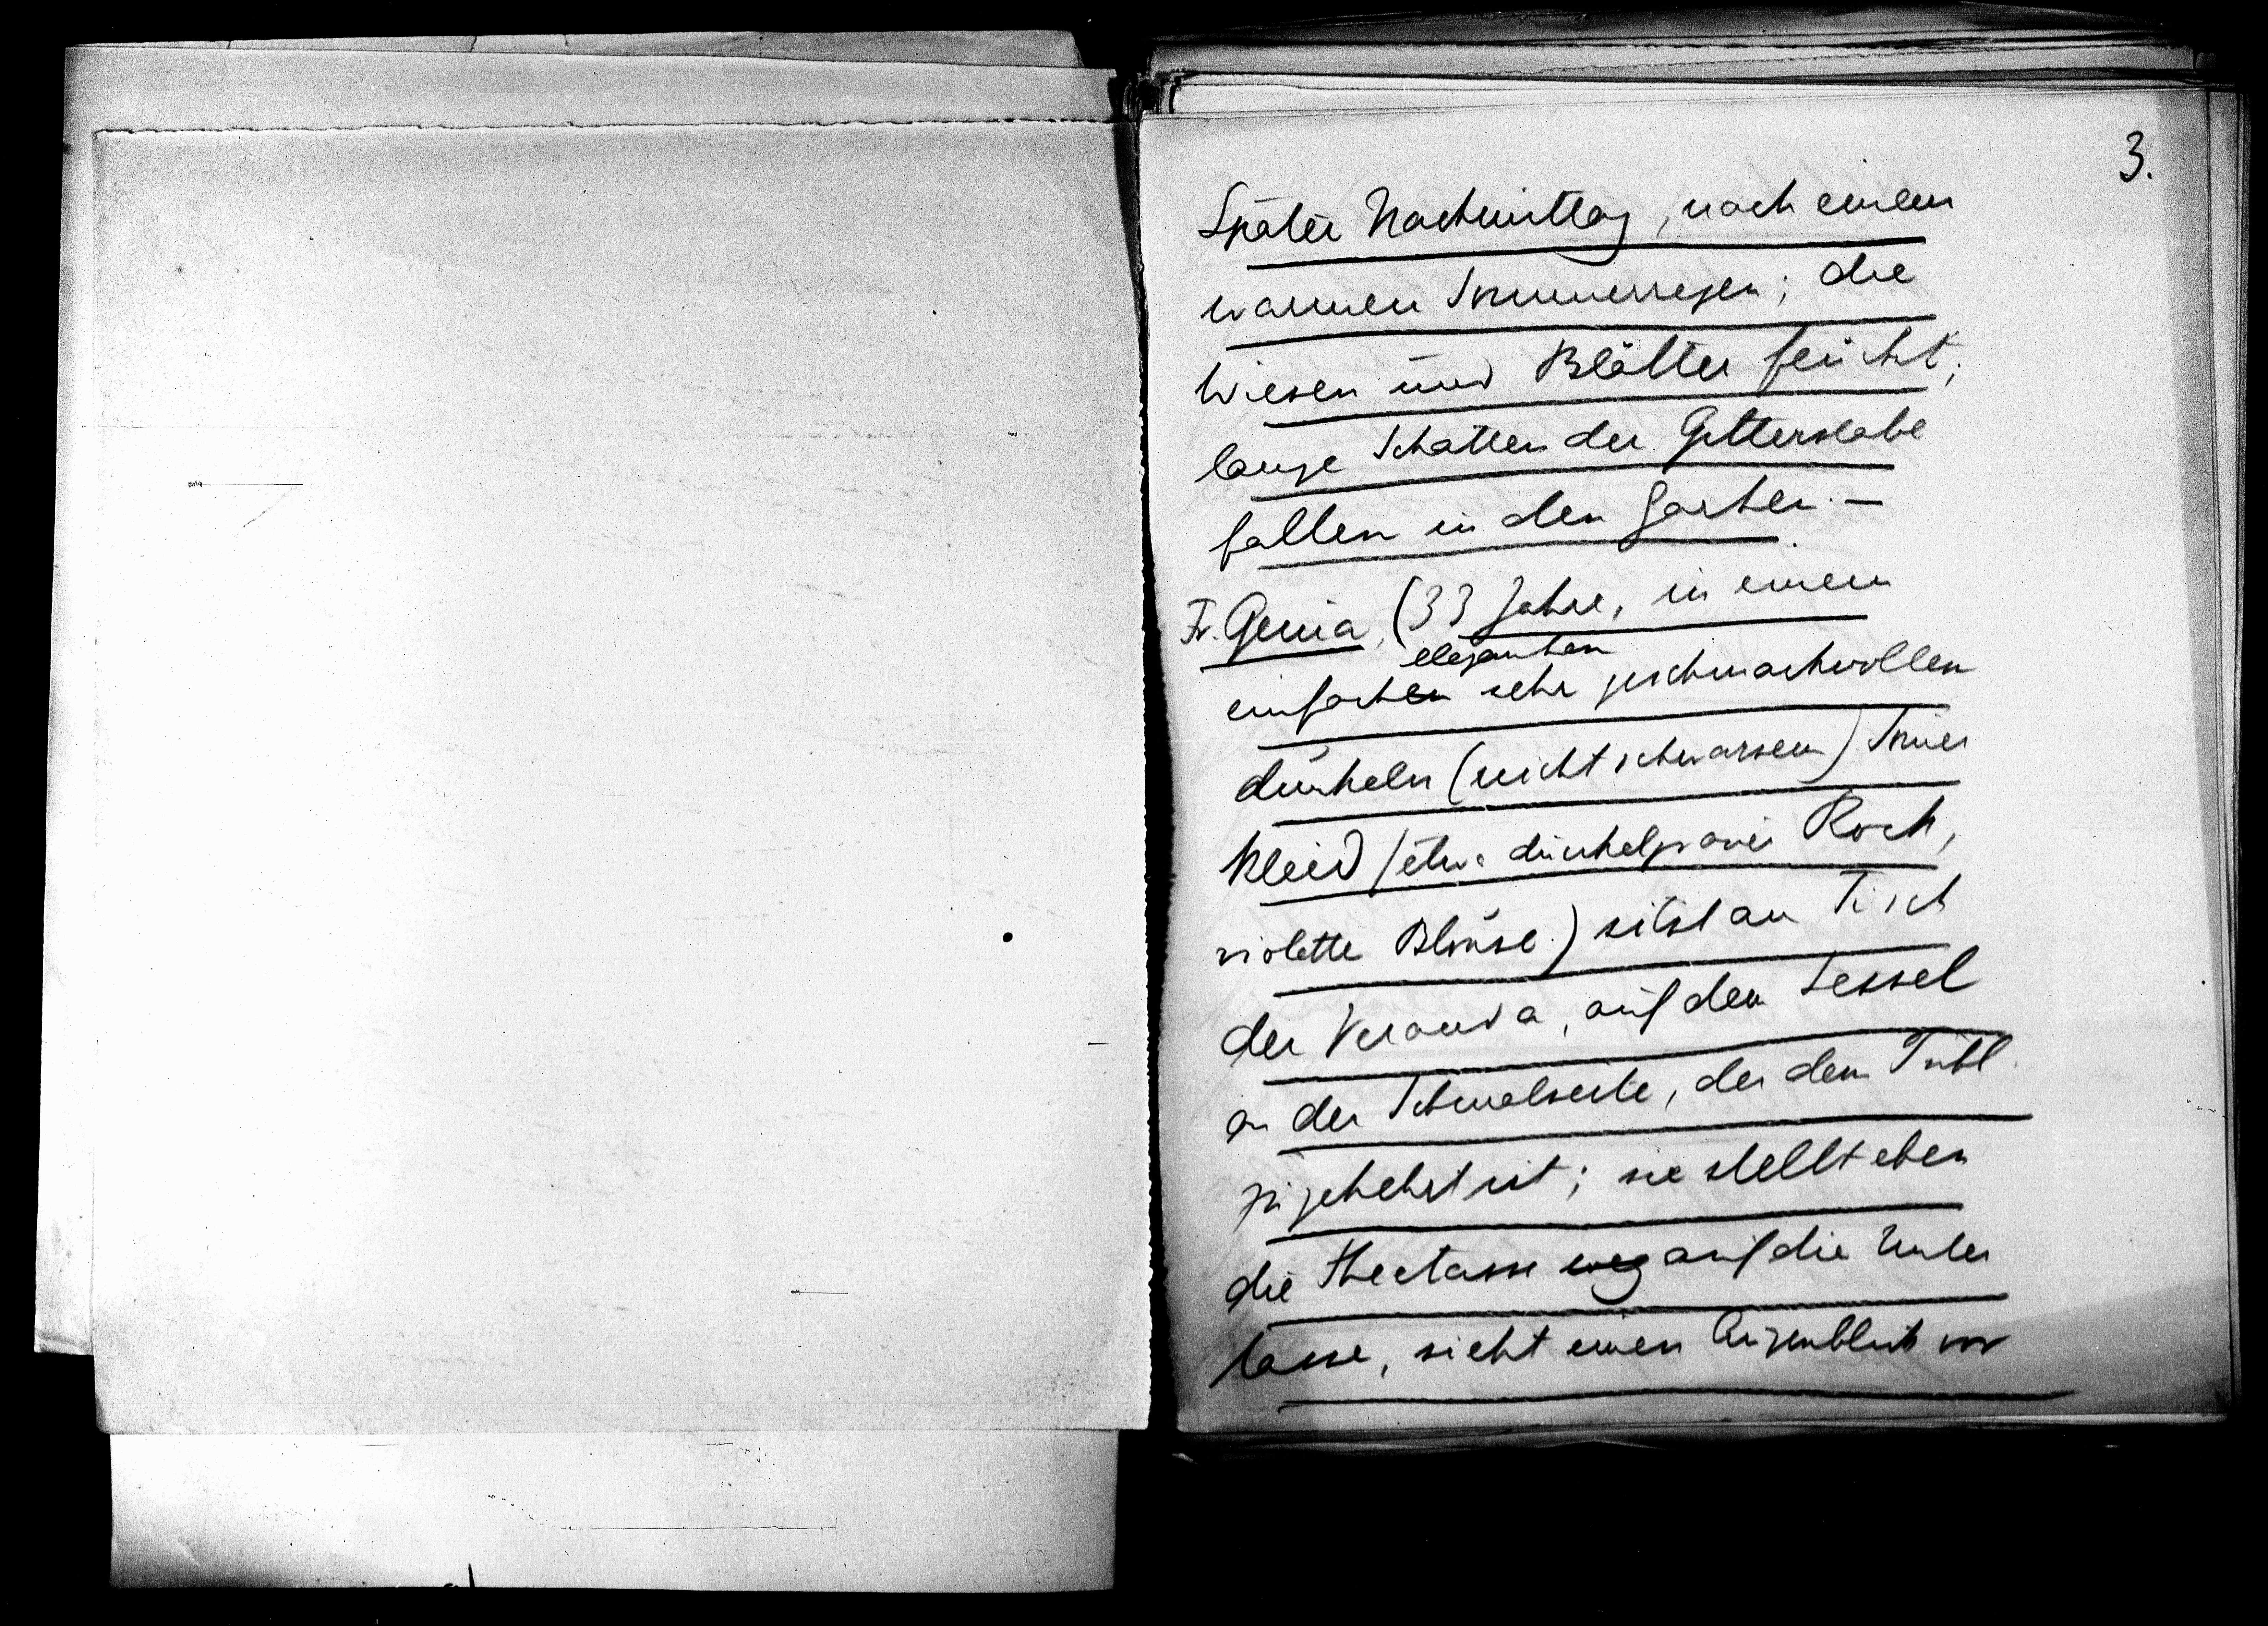 3.
Später Nachmittag, nach einem
warmen Sommerregen; die
Wiesen und Blätter feucht;
lange Schatten der Gitterstäbe
fallen in den Garten. –
Fr. Genia, (33 Jahre, in einem
eleganten
einfachen sehr geschmackvollen
dunkeln (nicht schwarzem) Somer
kleid (etwa dunkelgrauer Rock,
violette Blouse.) sitzt am Tisch
der Veranda, auf dem Sessel
an der Schmalseite, der dem Publ.
zugekehrt ist; sie stellt eben
die Theetasse weg auf die Unter
tasse, sieht einen Augenblick vor